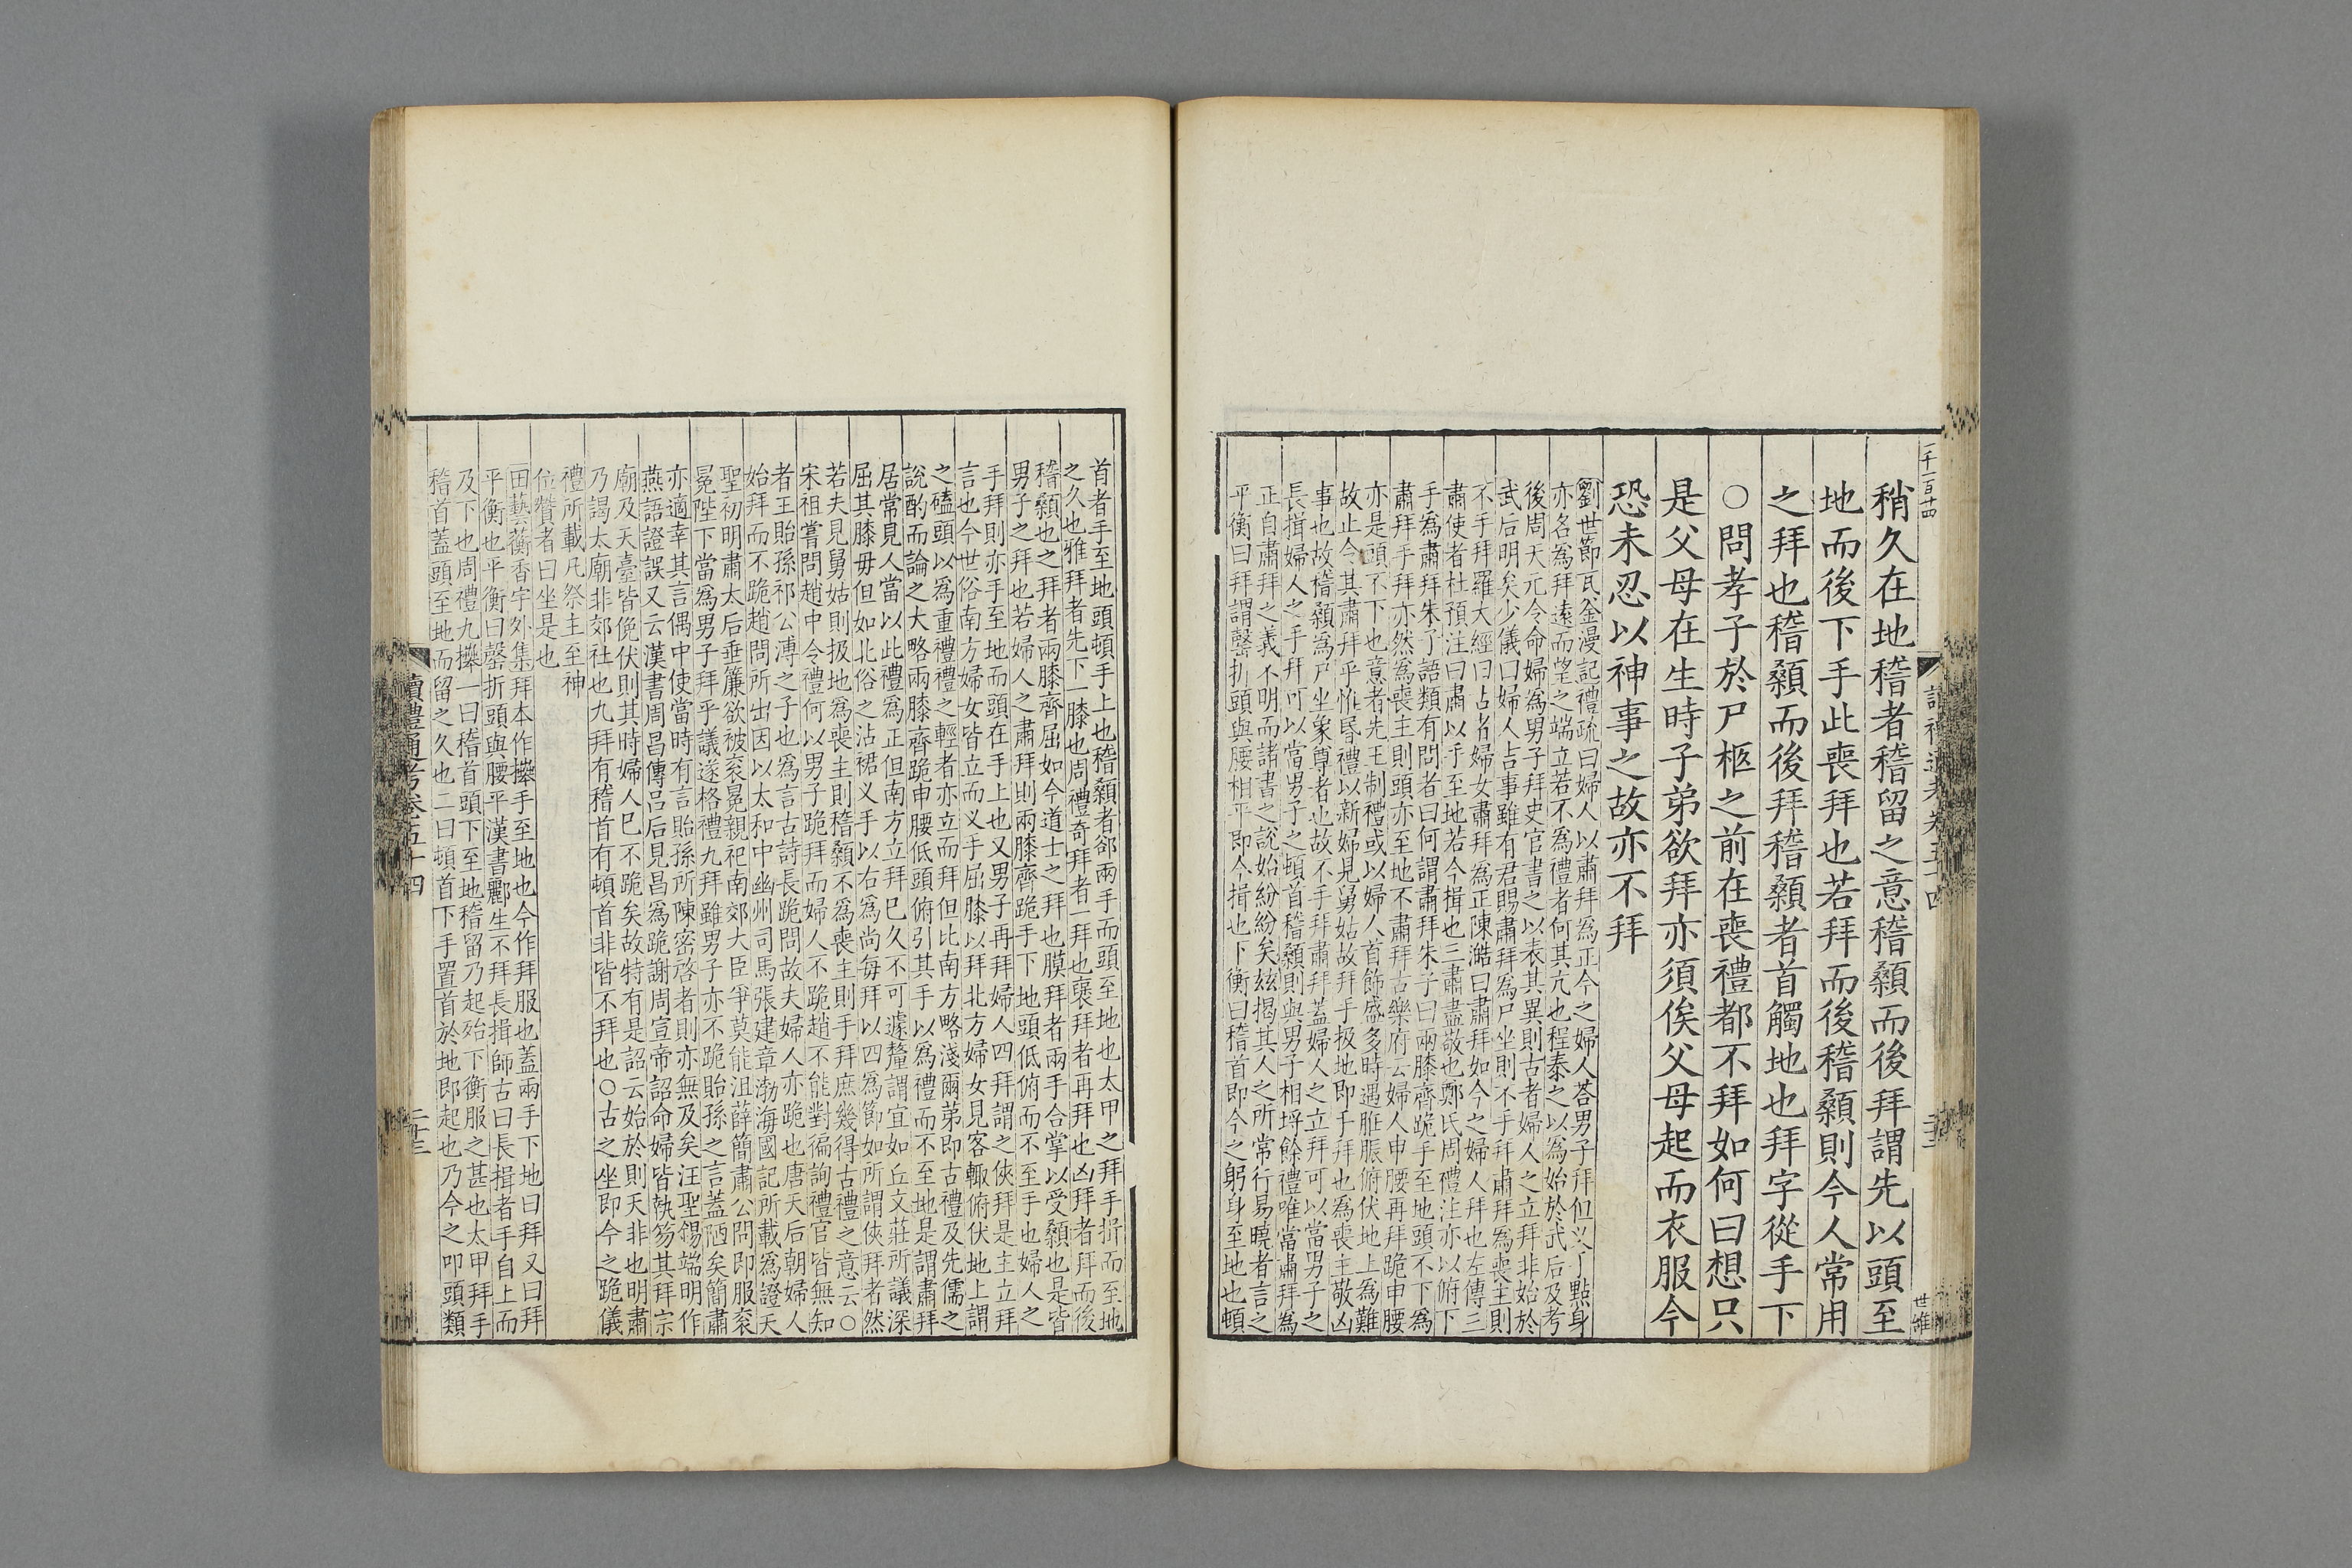 稍久在地稽者稽留之意稽顙而後拜謂先以頭至
地而後下手此喪拜也若拜而後稽顙則今人常用
之拜也稽顙而後拜稽顙者首觸地也拜字從手下
○問孝子於尸柩之前在喪禮都不拜如何曰想只
是父母在生時子弟欲拜亦須俟父母起而衣服今
恐未忍以神事之故亦不拜
劉世節瓦釜漫記禮疏曰婦人以肅拜為正今之婦人荅男子拜但
亦名為拜遠而望之端立若不為禮者何其亢也程泰之以為始於武后及考
後周天元令命婦為男子拜史官書之以表其異則古者婦人之立拜非始於
武后明矣少儀曰婦人占事雖有君賜肅拜為尸坐則不手拜肅拜為喪主則
不手拜羅大經曰古者婦女肅拜為正陳澔曰肅拜如今之婦人拜也左傳三
肅使者杜預注曰肅以手至地若今揖也三肅盡敬也鄭氏周禮注亦以俯下
手為肅拜朱子語類有問者曰何謂肅拜朱子曰兩膝齊跪手至地頭不下為
肅拜手拜亦然為喪主則頭亦至地不肅拜古樂府云婦人申腰再拜跪申腰
亦是頭不下也意者先王制禮或以婦人首飾盛多時遇脹俯伏地上為難
故止令其肅拜乎惟昏禮以新婦見舅姑故拜手扱地即手拜也為喪主敬凶
事也故稽顙為尸坐象尊者也故不手拜肅拜蓋婦人之立拜可以當男子之
長揖婦人之手拜可以當男子之頓首稽顙則與男子相埒餘禮唯當肅拜為
正自肅拜之義不明而諸書之說始紛紛矣茲揭其人之所常行易曉者言之
平衡曰拜謂罄折頭與腰相平即今揖也下衡曰稽首即今之躬身至地也頓
首者手至地頭頓手上也稽顙者郤兩手而頭至地也太甲之拜手揖而至地
之久也雅拜者先下一膝也周禮奇拜者一拜也褒拜者再拜也凶拜者拜而後
稽顙也之拜者兩膝齊屈如今道士之拜也膜拜者兩手合掌以受顙也是皆
男子之拜也若婦人之肅拜則兩膝齊跪手下地頭低俯而不至手也婦人之
手拜則亦手至地而頭在手上也又男子再拜婦人四拜謂之俠拜是主立拜
言也今世俗南方婦女皆立而义手屈膝以拜北方婦女見客輙俯伏地上謂
之磕頭以為重禮禮之輕者亦立而拜但比南方略淺爾弟即古禮及先儒之
說酌而論之大略兩膝齊跪申腰低頭俯引其手以為禮而不至地是謂肅拜
居常見人當以此禮為正但南方立拜巳久不可遽釐謂宜如丘文莊所議深
屈其膝毋但如北俗之沾裙义手以右為尚每拜以四為節如所謂俠拜者然
若夫見舅姑則扱地為喪主則稽顙不為喪主則手拜庶幾得古禮之意云○
宋祖嘗問趙中令禮何以男子跪拜而婦人不跪趙不能對徧詢禮官皆無知
者王貽孫祁公溥之子也為言古詩長跪問故夫婦人亦跪也唐天后朝婦人
始拜而不跪趙問所出因以太和中幽州司馬張建章渤海國記所載為證天
聖初明肅太后垂簾欲被袞冕親祀南郊大臣爭莫能沮薛簡肅公問即服袞
冕陛下當為男子拜乎議遂格禮九拜雖男子亦不跪貽孫之言蓋陋矣簡肅
亦適幸其言偶中使當時有言貽孫所陳密啓者則亦無及矣汪聖錫端明作
燕語證誤又云漢書周昌傳呂后見昌為跪謝周宣帝詔命婦皆執笏其拜宗
廟及天臺皆俛伏則其時婦人巳不跪矣故特有是詔云始於則天非也明肅
乃謁太廟非郊社也九拜有稽首有頓首非皆不拜也○古之坐即今之跪儀
禮所載凡祭主至神
位贊者曰坐是也
田藝蘅香宇外集拜本作𢷎手至地也今作拜服也蓋兩手下地曰拜又曰拜
平衡也平衡曰罄折頭與腰平漢書酈生不拜長揖師古曰長揖者手自上而
及下也周禮九𢷎一曰稽首頭下至地稽留乃起殆下衡服之甚也太甲拜手
稽首蓋頭至地而留之久也二曰頓首下手置首於地即起也乃今之叩頭類
讀禮通考卷五十四